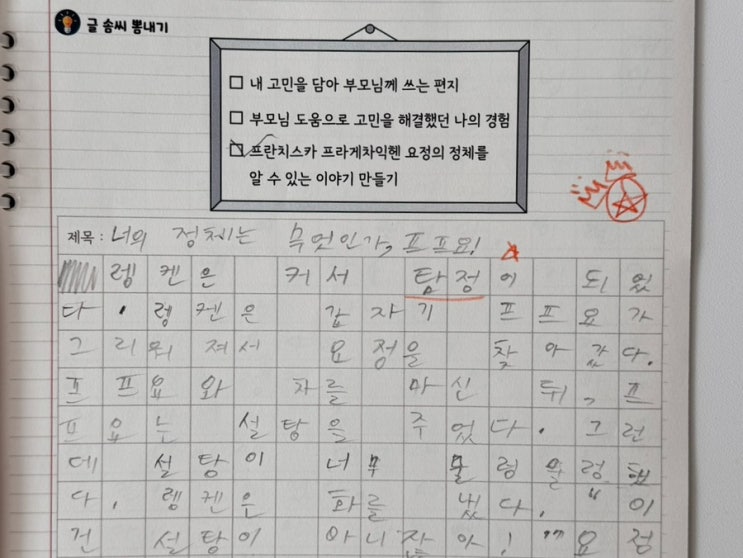 글 솜씨 뽐내기
내 고민을 담아 부모님께 쓰는 편지
부모님 도움으로 고민을 해결했던 나의 경험
프란치스카 프라게차익헨 요정의 정체를
알 수 있는 이야기 만들기
제목 : 너의 정체는 무엇인가, 프프요!
렝켄은 커서 탐정이 되었
다. 렝켄은 갑자기 프프요가
그리워져서 요정을 찾아갔다.
프프요와 차를 마신 뒤, 프
프요는 설탕을 주었다. 그런
데 설탕이 너무 물렁물렁했
다. 렝켄은 화를 냈다. "이
건 설탕이 아니잖아!" 요정